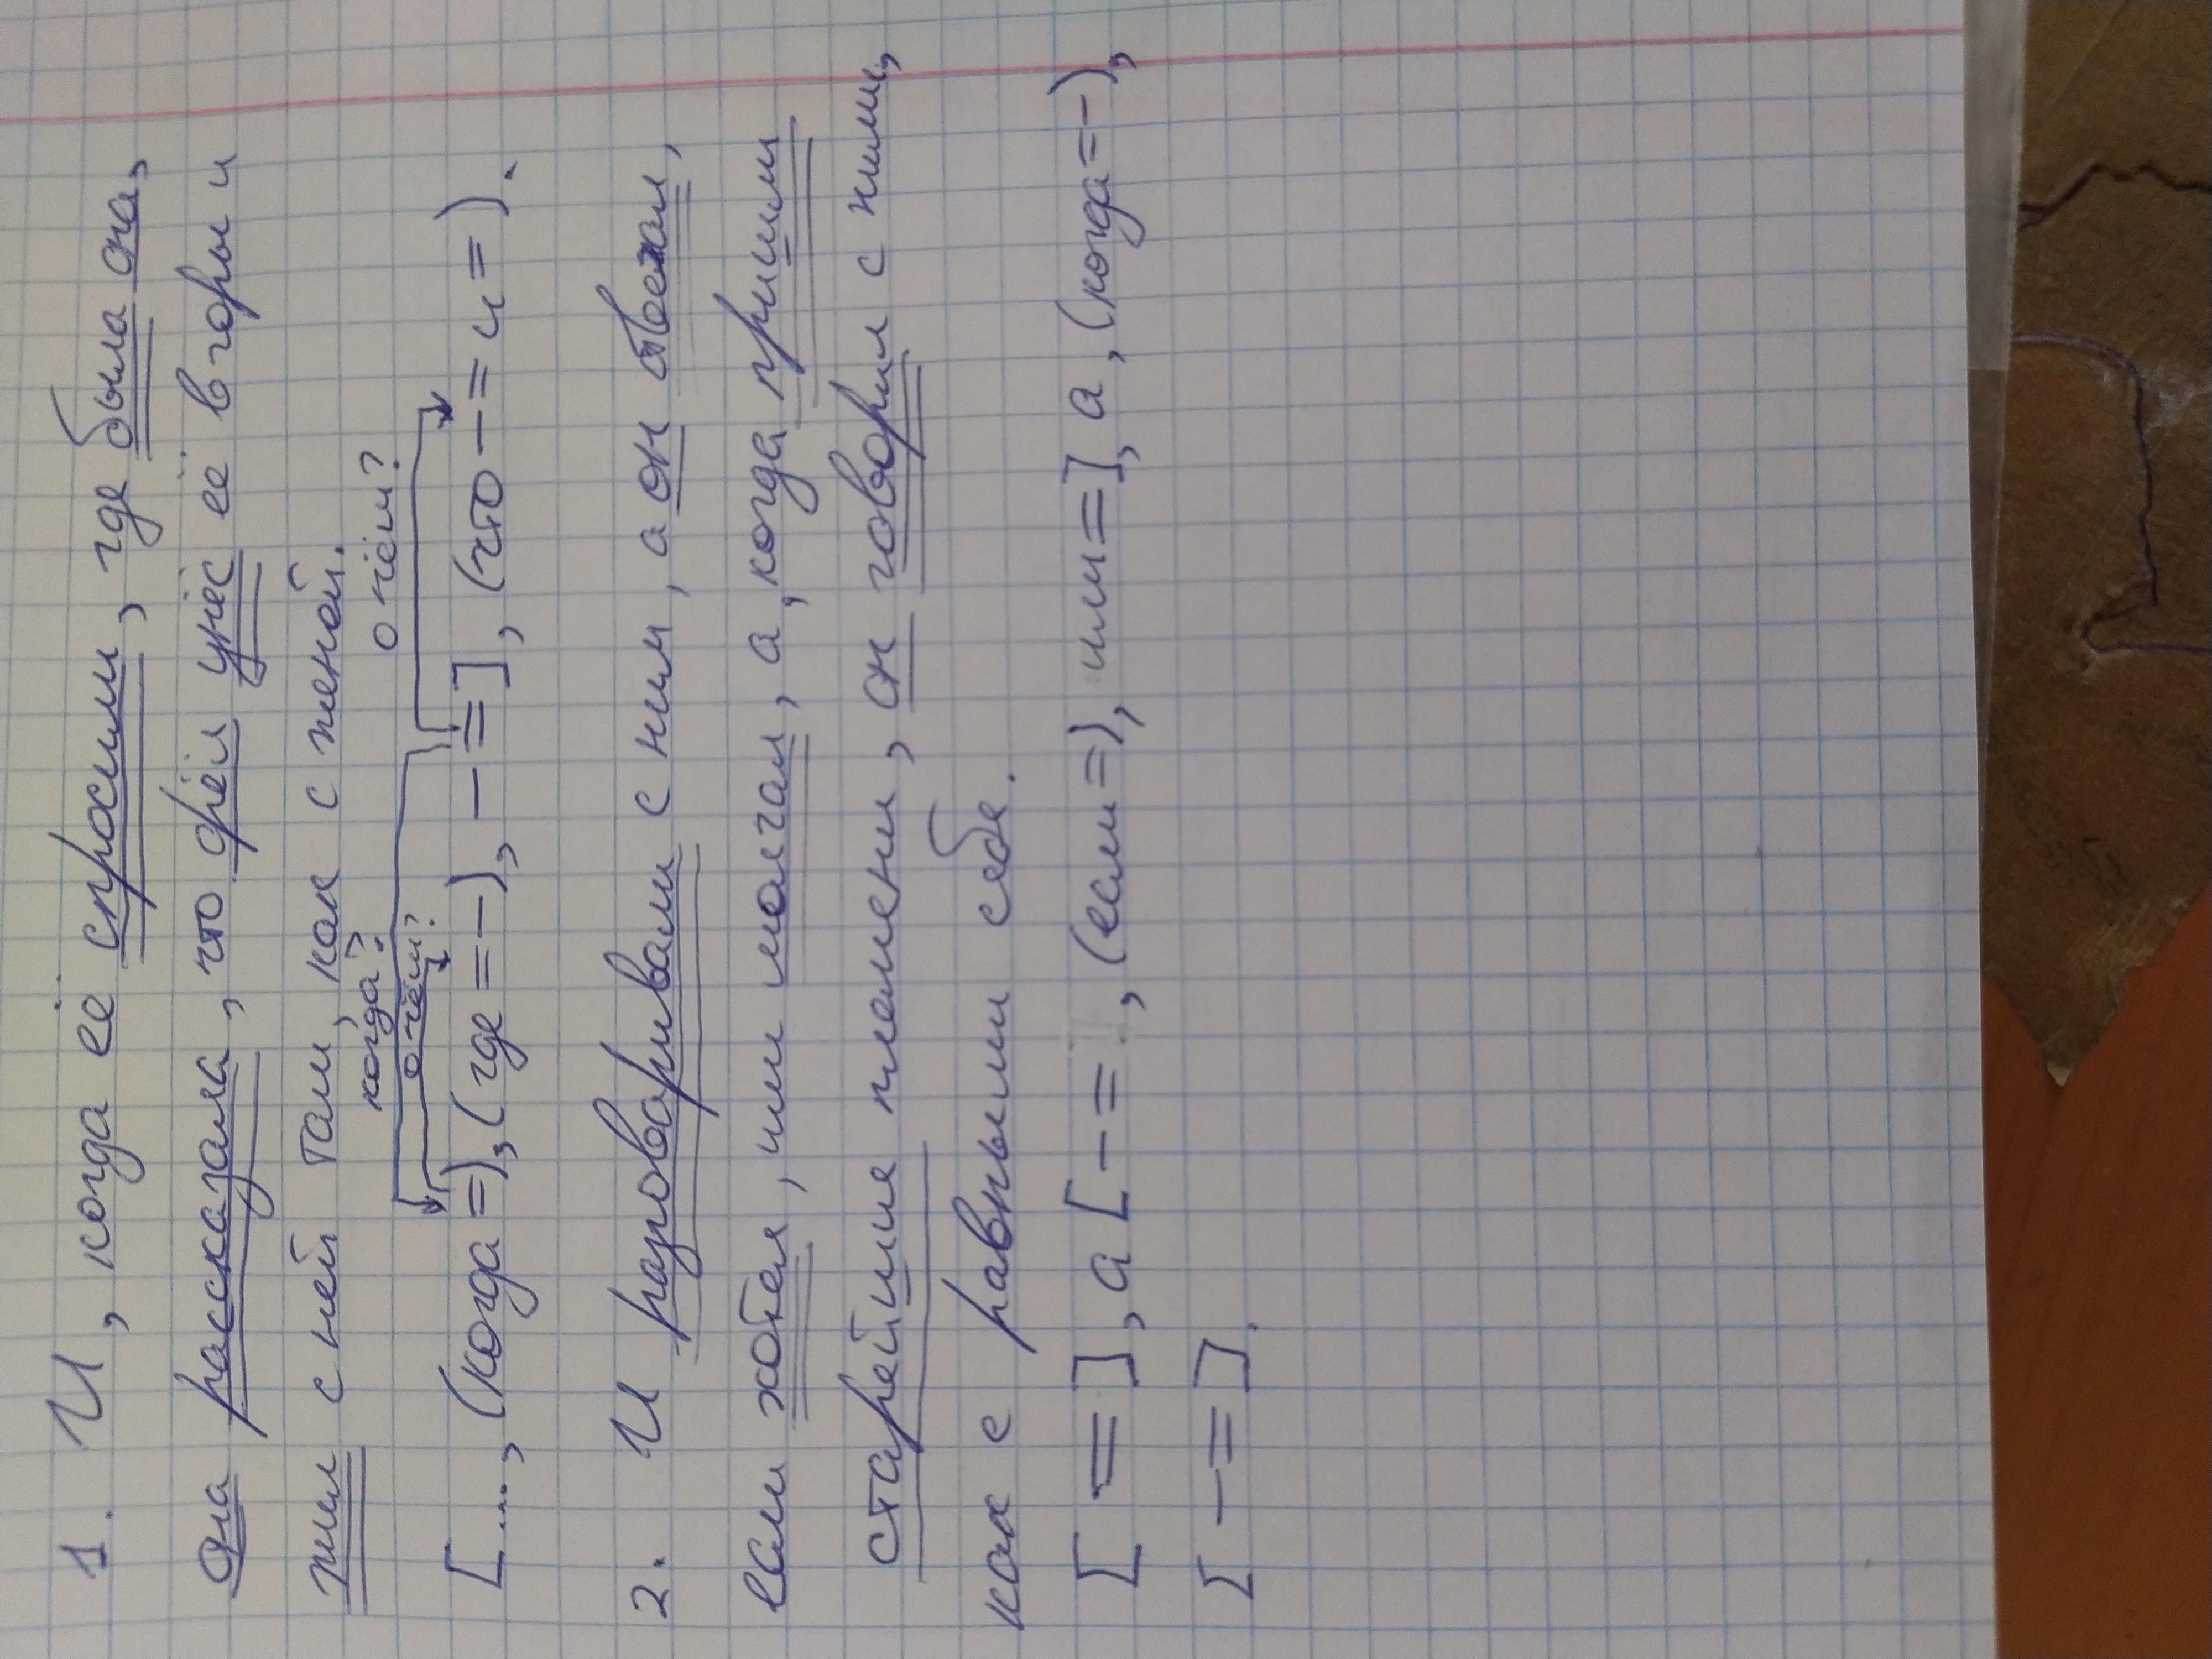 1. И, когда её спросили, где была она,
она рассказала, что орёл унёс её в горы и
жил с ней там, как с женой.
когда? о чём? о чём?
[..., (когда =), (где = –), – =], (что – = и =).
2. И разговаривали с ним, а он отвечал,
если хотел, или молчал, а, когда пришли
старейшие племени, он говорил с ними,
как с равными себе.
[ = ], а [ – = ], (если =), или = ], а, (когда = –),
[ – = ].